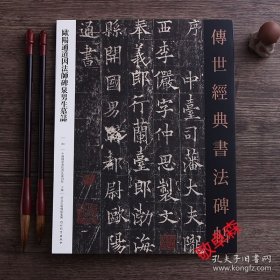 傳世經典書法碑帖
序 中臺司藩大夫隴
西李儼字仲思
奉義郎行蘭臺郎渤海
縣開國男騎都尉歐陽
通書
歐陽通道因法師碑泉男生墓誌
孔夫子旧书网